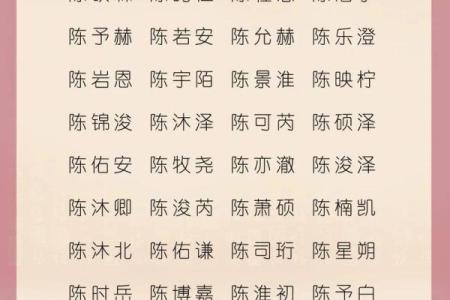 陈予赫 陈若安 陈允赫 陈乐澄
陈岩恩 陈宇陌 陈景淮 陈映柠
陈锦浚 陈沐泽 陈可芮 陈硕泽
陈佑安 陈牧尧 陈亦澈 陈浚泽
陈沐卿 陈浚芮 陈萧硕 陈楠凯
陈沐北 陈佑谦 陈司珩 陈星朔
陈时岳 陈博嘉 陈淮初 陈予白